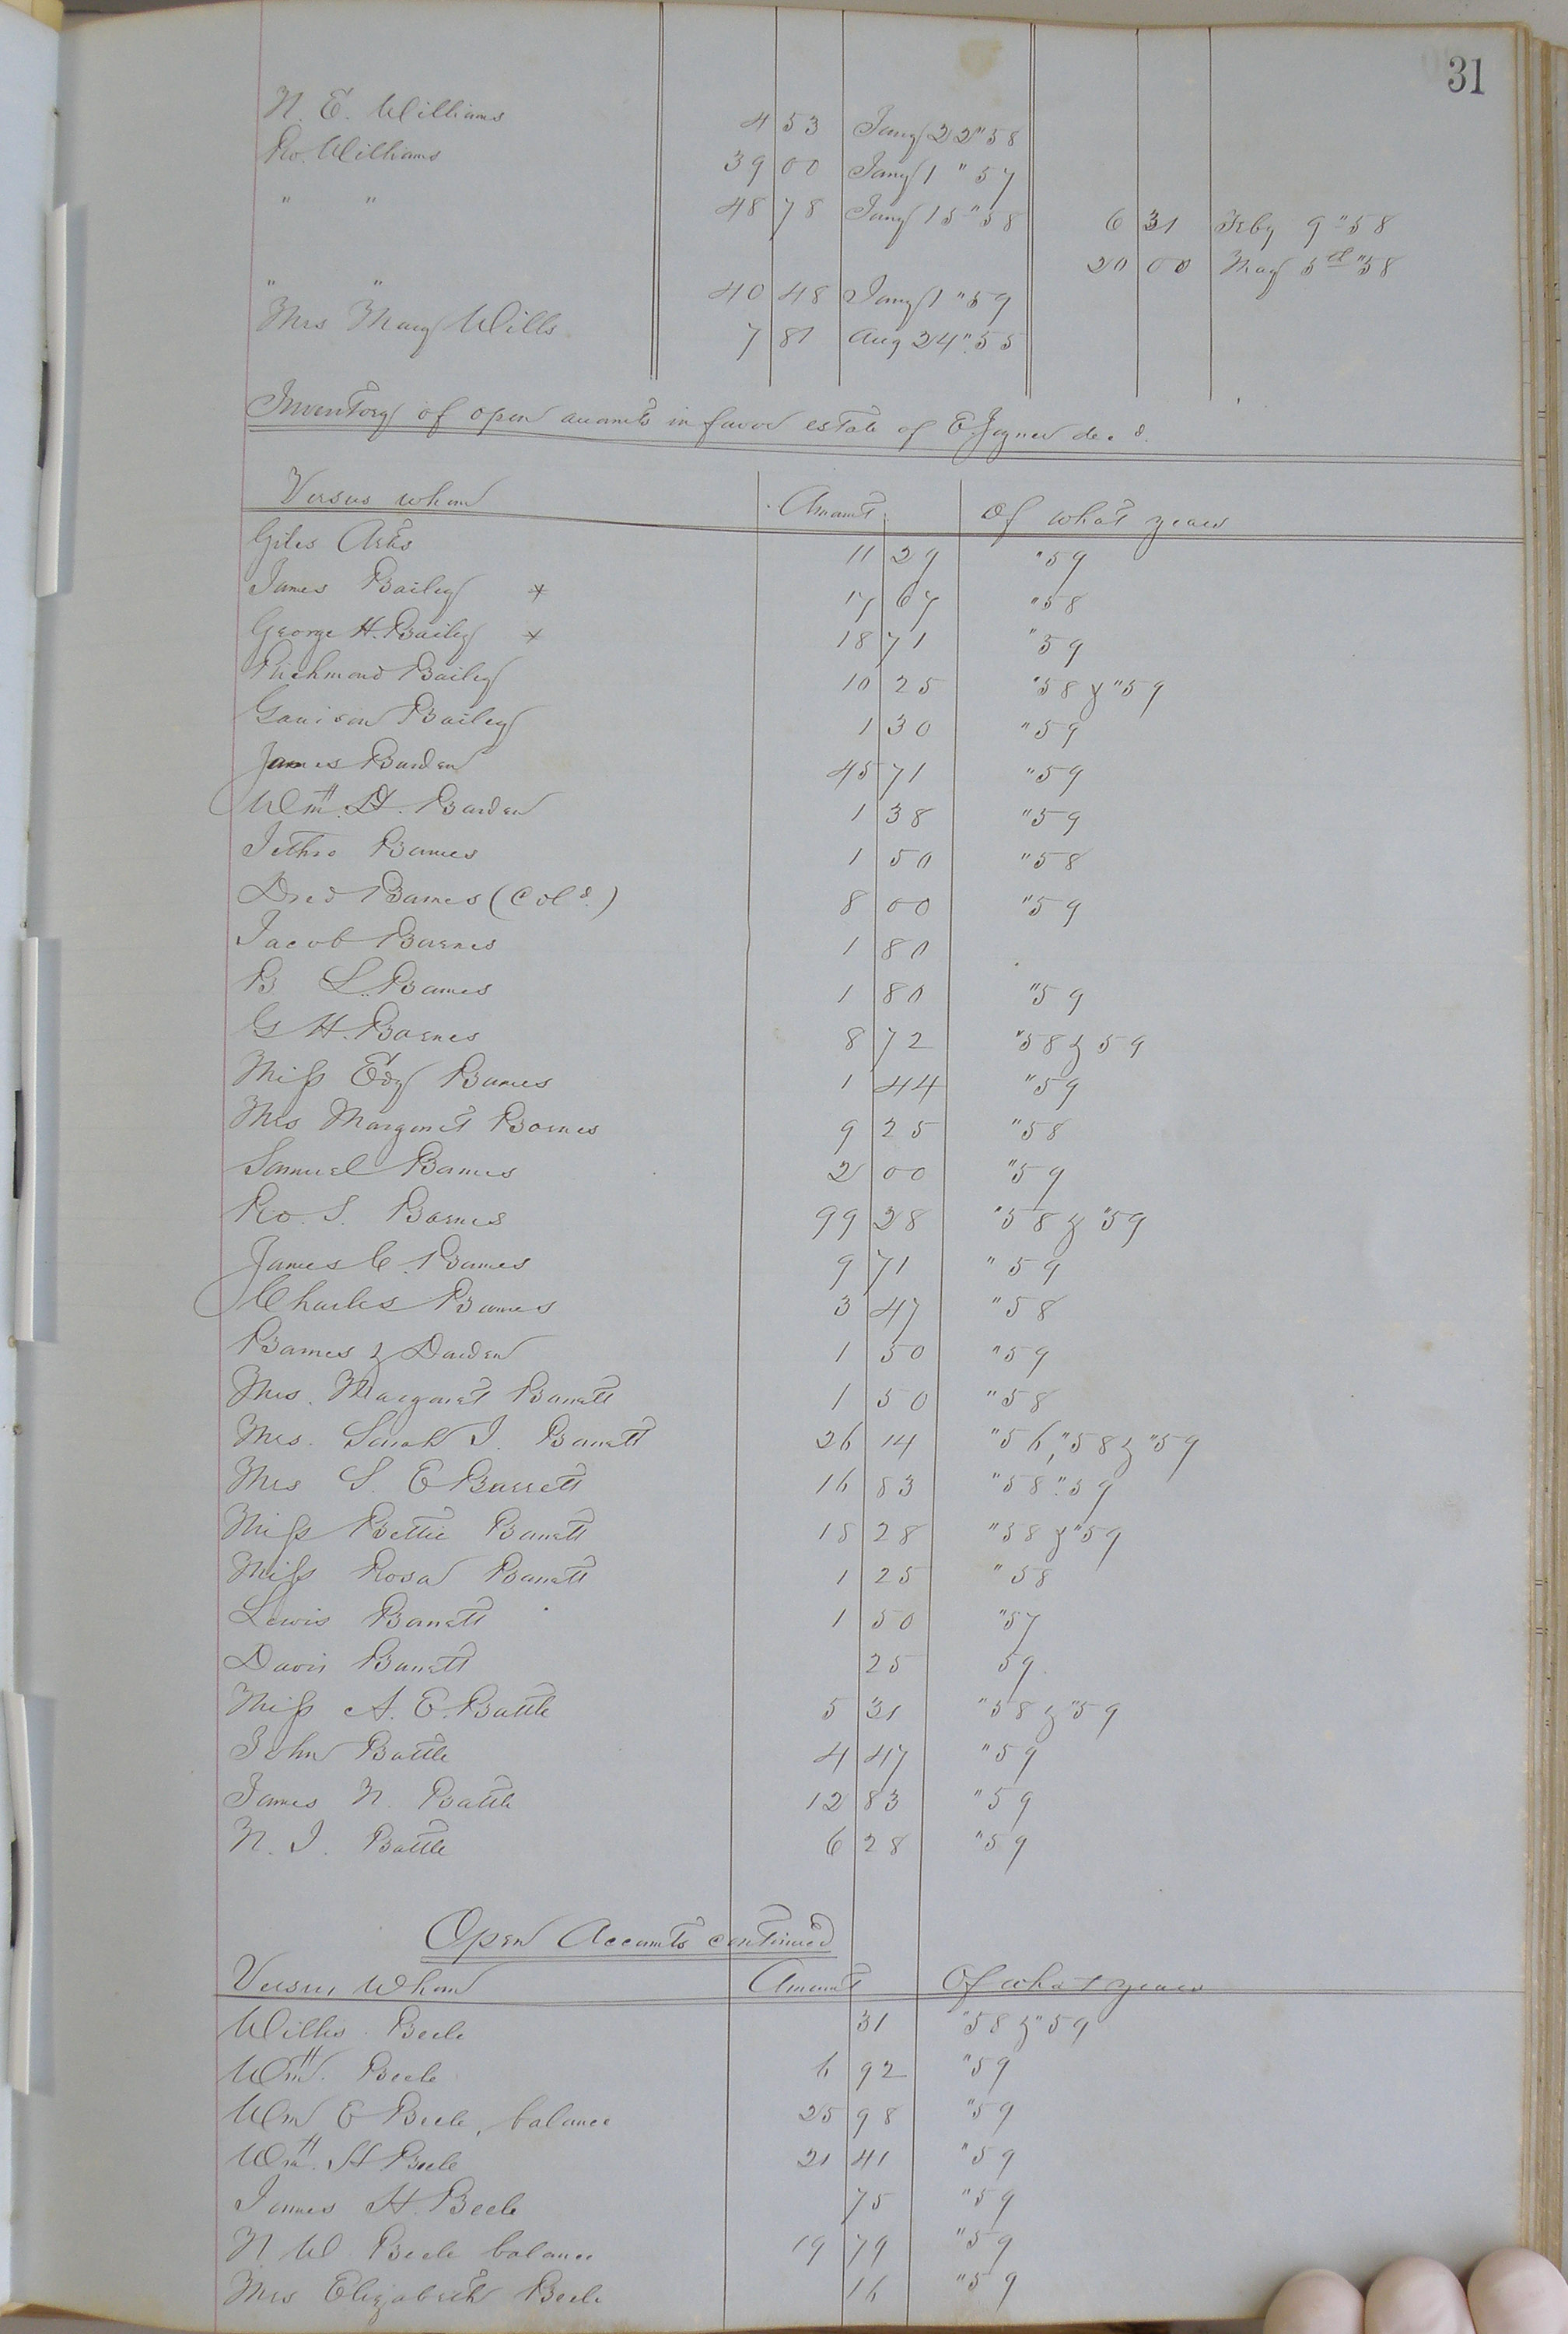 31
N. E. Williams 4 53 Jany 22 "58
Ro. Williams 39 00 Jany 1 "57
" " 48 78 Jany 15 "58 6 31 Feby 9 "58
20 00 May 5th "58
" " 40 48 Jany 1 "59
Mrs Mary Wills 7 81 Aug 24 "55
Inventory of open accounts in favor estate of E. Joyner decd.
Versus whom Amount Of what years
Giles Arts 11 29 "59
James Bailey * 17 67 "58
George H. Bailey * 18 71 "59
Richmond Bailey 10 25 "58 & "59
Garrison Bailey 1 30 "59
James Barden 45 71 "59
Wm. H. Barden 1 38 "59
Jethro Barnes 1 50 "58
Dred Barnes (Cold.) 8 00 "59
Jacob Barnes 1 80
B L. Barnes 1 80 "59
G H. Barnes 8 72 "58 & 59
Miss Edy Barnes 1 44 "59
Mrs Margaret Barnes 9 25 "58
Samuel Barnes 2 00 "59
Ro. S. Barnes 99 28 "58 & "59
James C. Barnes 9 71 "59
Charles Barnes 3 47 "58
Barnes & Darden 1 50 "59
Mrs. Margaret Barrett 1 50 "58
Mrs. Sarah J. Barrett 26 14 "56, "58 & "59
Mrs S. E Barrett 16 83 "58 "59
Miss Bettie Barrett 15 28 "58 & "59
Miss Rosa Barrett 1 25 "58
Lewis Barrett 1 50 "57
Davis Barrett 25 59
Miss A. E. Battle 5 31 "58 & "59
John Battle 4 47 "59
James N. Battle 12 83 "59
N. J. Battle 6 28 "59
Open Accounts continued
Versus Whom Amount Of what years
Willis Beele 31 "58 & "59
Wm. Beele 6 92 "59
Wm E Beele, balance 25 98 "59
Wm. H Beele 21 41 "59
James H. Beele 75 "59
N W Beele balance 19 79 "59
Mrs Elizabeth Beele 16 "59